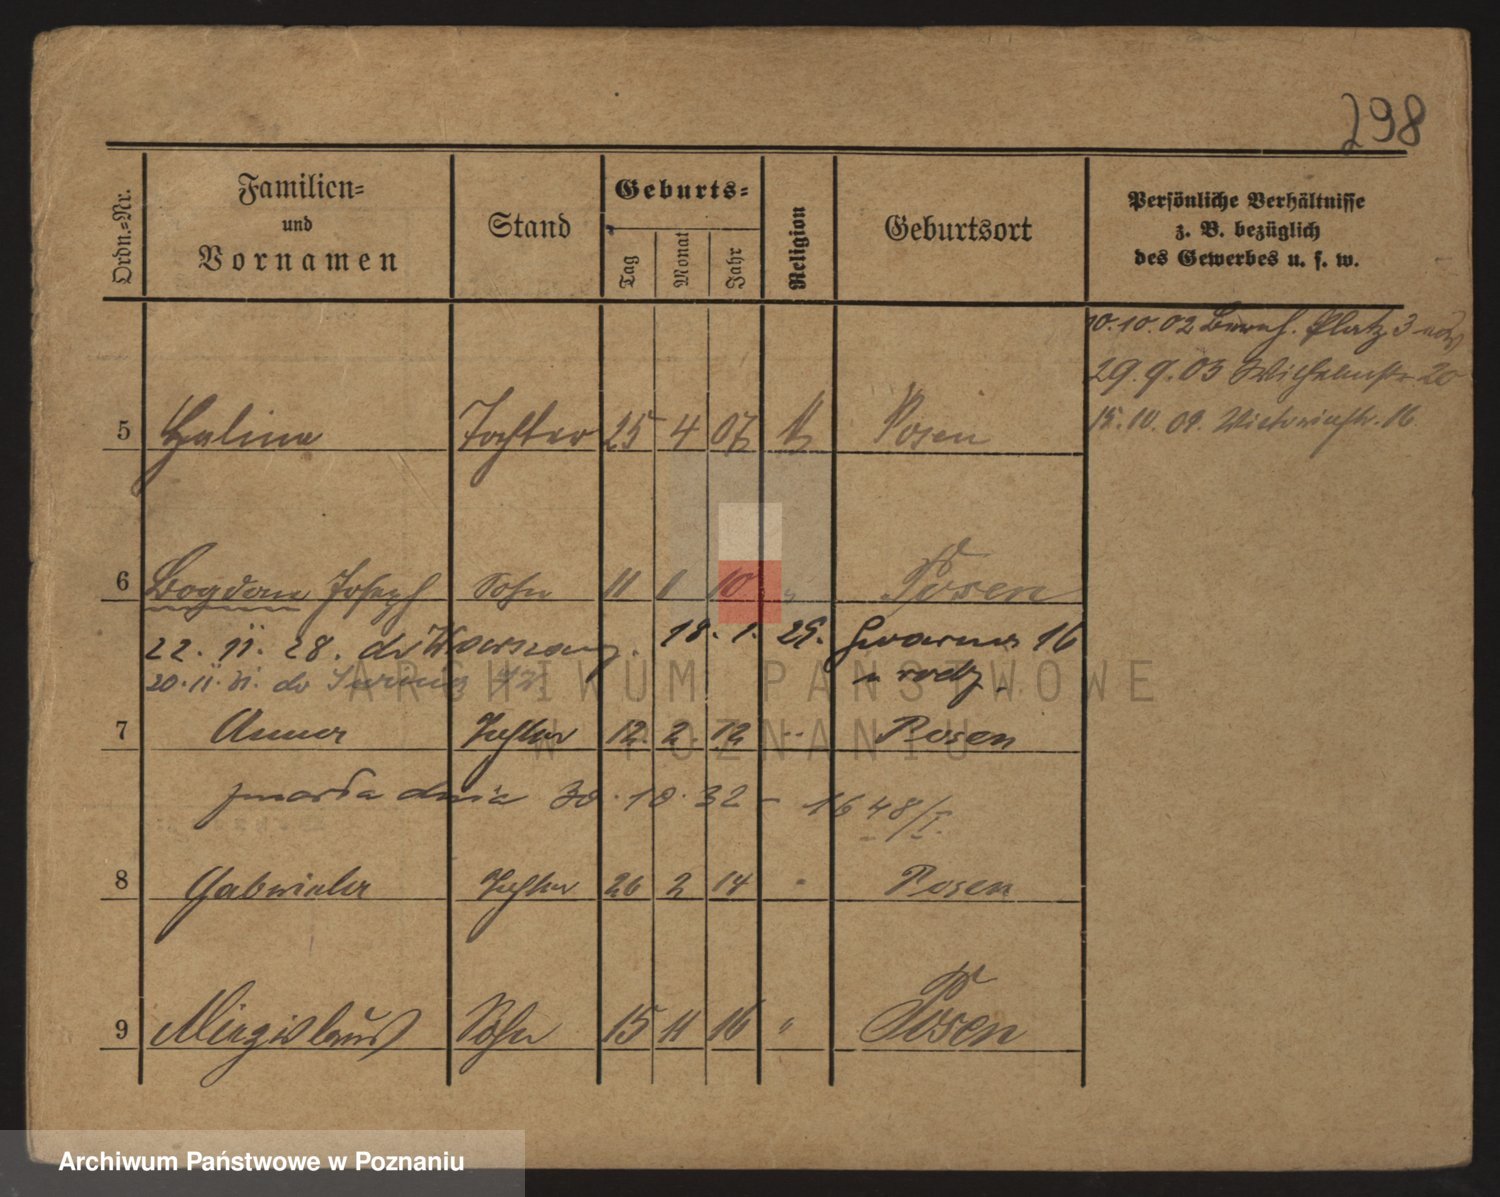 298
Ordn.-Nr.
Familien-
und
Vornamen
Stand
Geburts-
Tag
Monat
Jahr
Religion
Geburtsort
Persönliche Verhältnisse
z. B. bezüglich
des Gewerbes u. s. w.
10.10.02 Bernh. Platz 3
29.9.03 Wilhelmstr. 20
15.10.09. Victoriastr. 16
5 Halina Tochter 25 4 07 Posen
6 Bogdan Joseph Sohn 11 1 10 " Posen
22. 11. 28. do 18. 1. 29. 16
20. 11. 31. do
u rodz.
7 Anna Tochter 12 2 12 " Posen
zmarła dnia 30.10.32 - 1648/I.
8 Gabriela Tochter 26 2 14 " Posen
9 Miezislaus Sohn 15 11 16 " Posen
ARCHIWUM PAŃSTWOWE
W POZNANIU
Archiwum Państwowe w Poznaniu